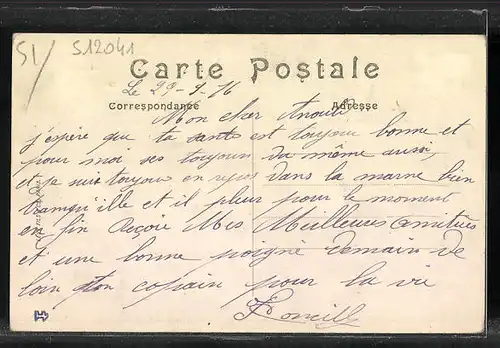 SI/
S12041
Carte Postale
Le 29-9-16
Correspondance
Adresse
Mon cher
j'espère que ta santé est toujou bonne et
pour moi ses toujours du même aussi,
et je suis toujou en repos dans la marne bien
tranqu'ille et il pleur pour le moment
en fin Reçoie Mes Meilleures amitiées
et une bonne poigné demain de
loin ton copain pour la vie